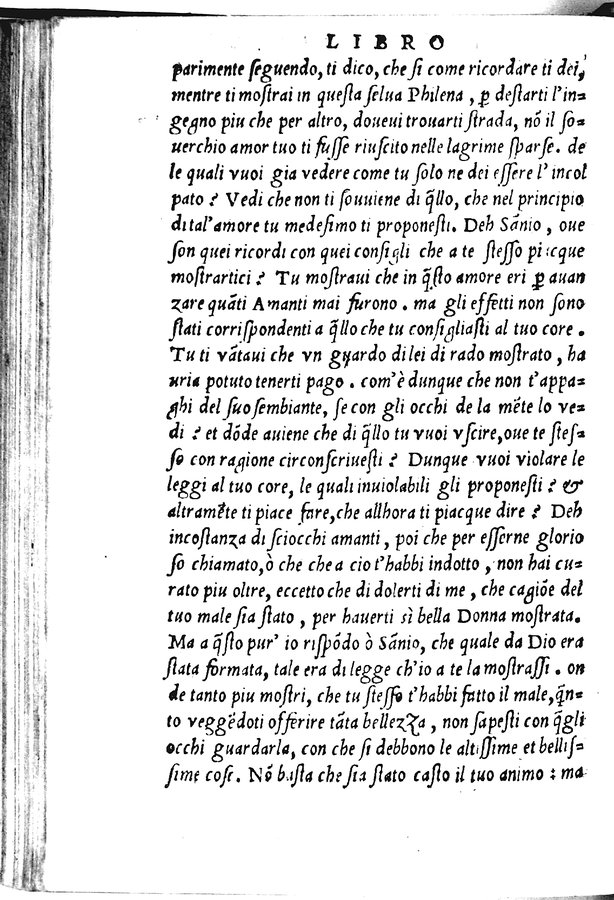 LIBRO
parimente ſeguendo, ti dico, che ſi come ricordare ti dei,
mentre ti moſtrai in queſta ſelua Philena, ꝑ deſtarti l'in=
gegno piu che per altro, doueui trouarti ſtrada, nõ il ſo=
uerchio amor tuo ti fuſſe riuſcito nelle lagrime ſparſe. de
le quali vuoi gia vedere come tu ſolo ne dei eſſere l'incol
pato? Vedi che non ti ſouuiene di q̃llo, che nel principio
di tal'amore tu medeſimo ti proponeſti. Deh Sãnio, oue
ſon quei ricordi con quei conſigli che a te ſteſſo piacque
moſtrartici? Tu moſtraui che in q̃ſto amore eri ꝑ auan
zare quãti Amanti mai furono. ma gli effetti non ſono
ſtati corriſpondenti a q̃llo che tu conſigliaſti al tuo core.
Tu ti vãtaui che vn guardo di lei di rado moſtrato, ha
uria potuto tenerti pago. com'è dunque che non t'appa=
ghi del ſuo ſembiante, ſe con gli occhi de la mẽte lo ve=
di? et dõde auiene che di q̃llo tu vuoi vſcire, oue te ſteſ=
ſo con ragione circonſcriueſti? Dunque vuoi violare le
leggi al tuo core, le quali inuiolabili gli proponeſti? &
altramẽte ti piace fare, che allhora ti piacque dire? Deh
incoſtanza di ſciocchi amanti, poi che per eſſerne glorio
ſo chiamato, ò che che a cio t'habbi indotto, non hai cu=
rato piu oltre, eccetto che di dolerti di me, che cagiõe del
tuo male ſia ſtato, per hauerti sì bella Donna moſtrata.
Ma a q̃ſto pur' io riſpõdo ò Sãnio, che quale da Dio era
ſtata formata, tale era di legge ch'io a te la moſtraſſi. on
de tanto piu moſtri, che tu ſteſſo t'habbi fatto il male, q̃n=
to veggẽdoti offerire tãta bellezza, non ſapeſti con q̃gli
occhi guardarla, con che ſi debbono le altiſſime et belliſ=
ſime coſe. Nõ baſta che ſia ſtato caſto il tuo animo: ma